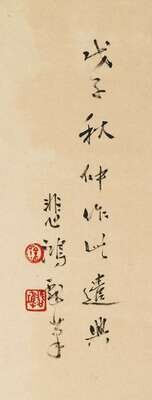 戊子秋仲作此遣興
悲鴻戲筆